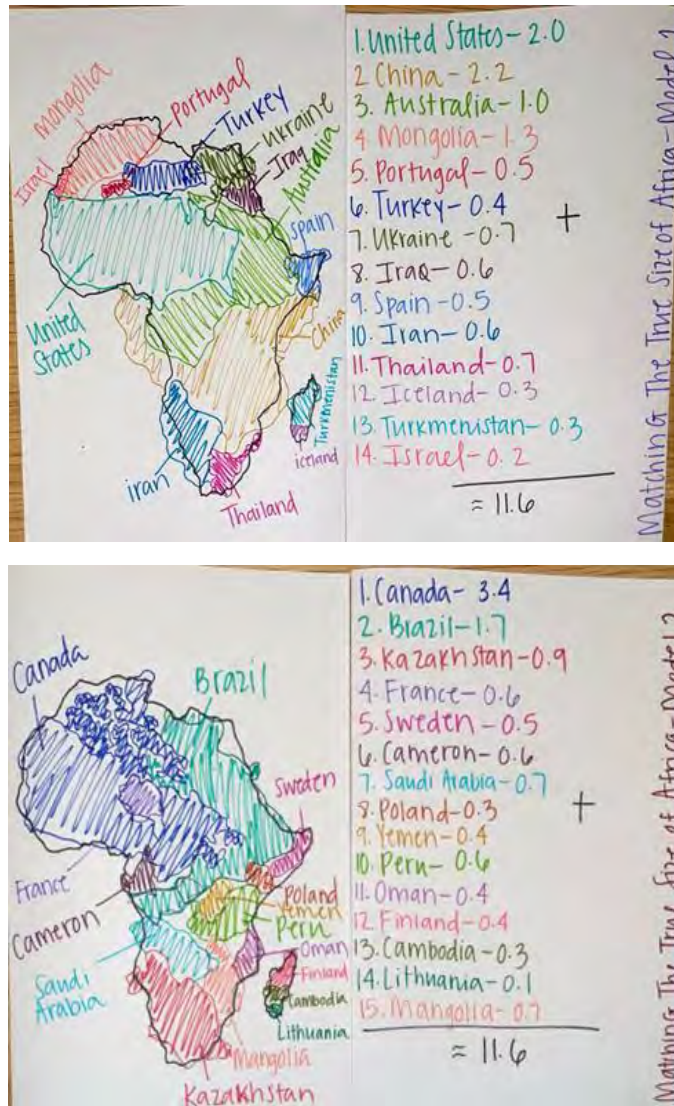 Mongolia
Portugal
Turkey
Ukraine
Iraq
Australia
Israel
Spain
United
States
China
Turkmenistan
iceland
iran
Thailand
1. United States- 2.0
2 China - 2.2
3. Australia - 1.0
4. Mongolia - 1.3
5. Portugal - 0.5
6. Turkey- 0.4
7. Ukraine -0.7
8. Iraq- 0.6
9. Spain -0.5
10. Iran- 0.6
11. Thailand-0.7
12. Iceland- 0.3
13. Turkmenistan- 0.3
14. Israel- 0.2
+
≈ 11.6
Matching The True Size of Africa - Model 1
Canada
Brazil
Sweden
France
Cameron
Poland
Yemen
Peru
Saudi
Arabia
Oman
Finland
Cambodia
Lithuania
Mangolia
Kazakhstan
1. Canada- 3.4
2. Brazil-1.7
3. Kazakhstan-0.9
4. France-0.6
5. Sweden -0.5
6. Cameron- 0.6
7. Saudi Arabia-0.7
8. Poland-0.3
9. Yemen-0.4
10. Peru- 0.6
11. Oman-0.4
12 Finland-0.4
13. Cambodia-0.3
14. Lithuania-0.1
15. Mangolia-0.7
+
≈ 11.6
Matching The True Size of Africa-Model 2